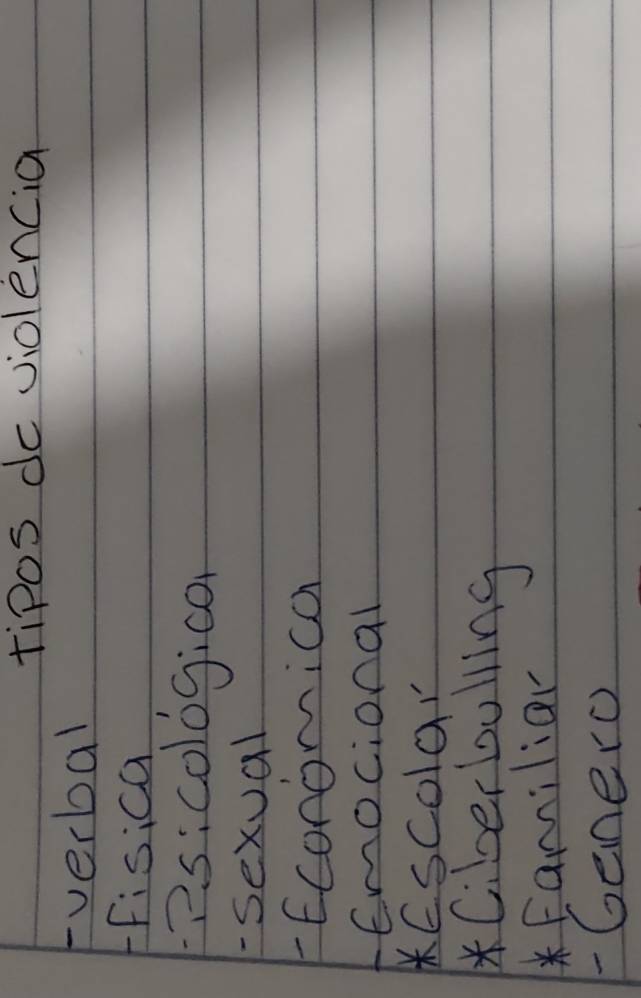 tipos de violéncia
-verbal
-fisica
-Psicológica
-sexual
-Económica
-Emocional
*Escolar
*Ciberbulling
*familiar
-Genero